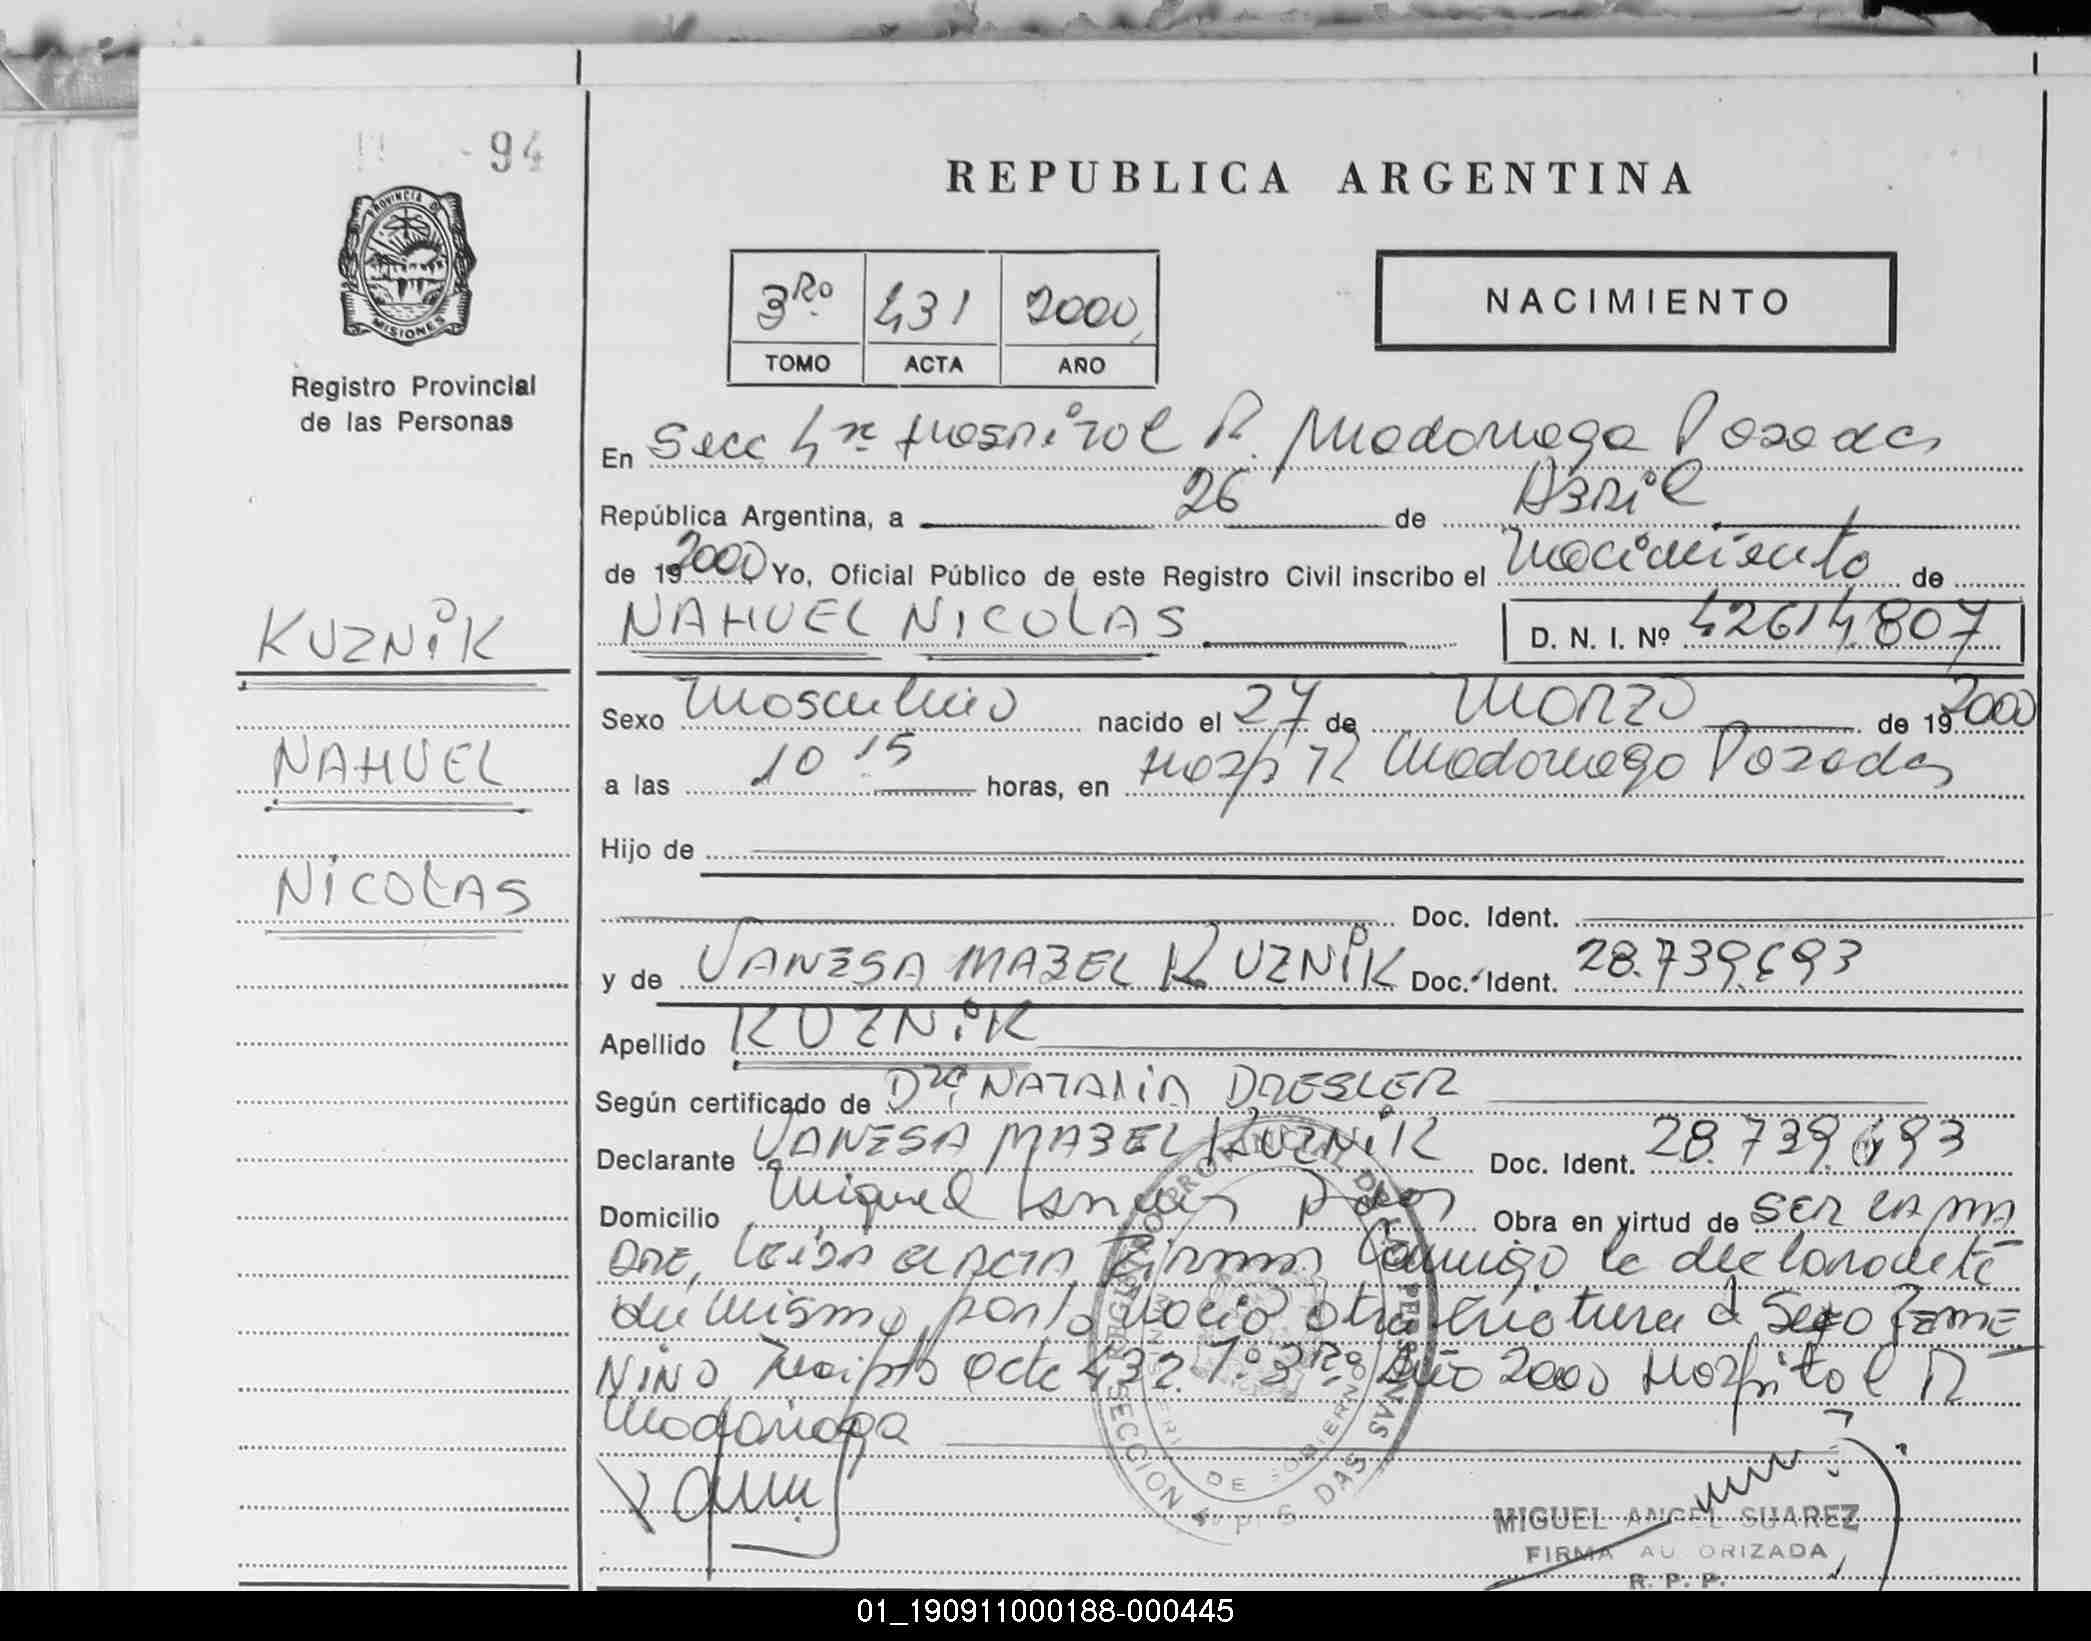 94
PROVINCIA DE
MISIONES
Registro Provincial
de las Personas
REPUBLICA ARGENTINA
3Ro 431 2000
TOMO ACTA AÑO
NACIMIENTO
En Secc 4ta Hospital R. Madariaga Posadas
República Argentina, a 26 de Abril
de 19 2000 Yo, Oficial Público de este Registro Civil inscribo el Nacimiento de
NAHUEL NICOLAS D. N. I. Nº 42614.807
KUZNIK
Sexo Masculino nacido el 27 de Marzo de 19 2000
NAHUEL
a las 10 15 horas, en Hosp R Madariaga Posadas
Hijo de
NICOLAS
Doc. Ident.
y de VANESA MABEL KUZNIK Doc. Ident. 28.739.693
Apellido KUZNIK
Según certificado de Dra. NATALIA DRESLER
Declarante VANESA MABEL KUZNIK Doc. Ident. 28.739.693
Domicilio Miguel Obra en virtud de SER LA MA
DRE, Leida el ACTA Firma Conmigo la declarante
del mismo parto nacio otra criatura d Sexo FEME
NINO Acta 432 Tº 3Ro. Año 2000 Hospital R
Madariaga
MIGUEL ANGEL SUAREZ
FIRMA AUTORIZADA
R. P. P.
01_190911000188-000445